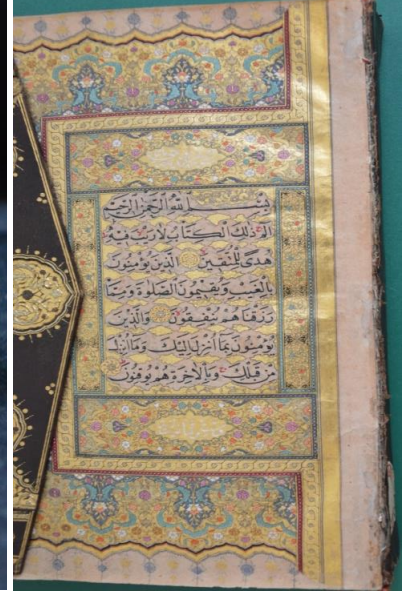 بِسْــــمِ اللهِ الرَّحْمٰنِ الرَّحِيْمِ
الم ذٰلِكَ الْكِتَابُ لَارَيْبَ فِيْهِ
هُدًى لِلْمُتَّقِينَ الَّذِينَ يُؤْمِنُونَ
بِالْغَيْبِ وَيُقِيمُونَ الصَّلٰوةَ وَمِمَّا
رَزَقْنَاهُمْ يُنْفِقُونَ وَالَّذِينَ
يُؤْمِنُونَ بِمَا أُنْزِلَ إِلَيْكَ وَمَا أُنْزِلَ
مِنْ قَبْلِكَ وَبِالْاٰخِرَةِ هُمْ يُوقِنُونَ